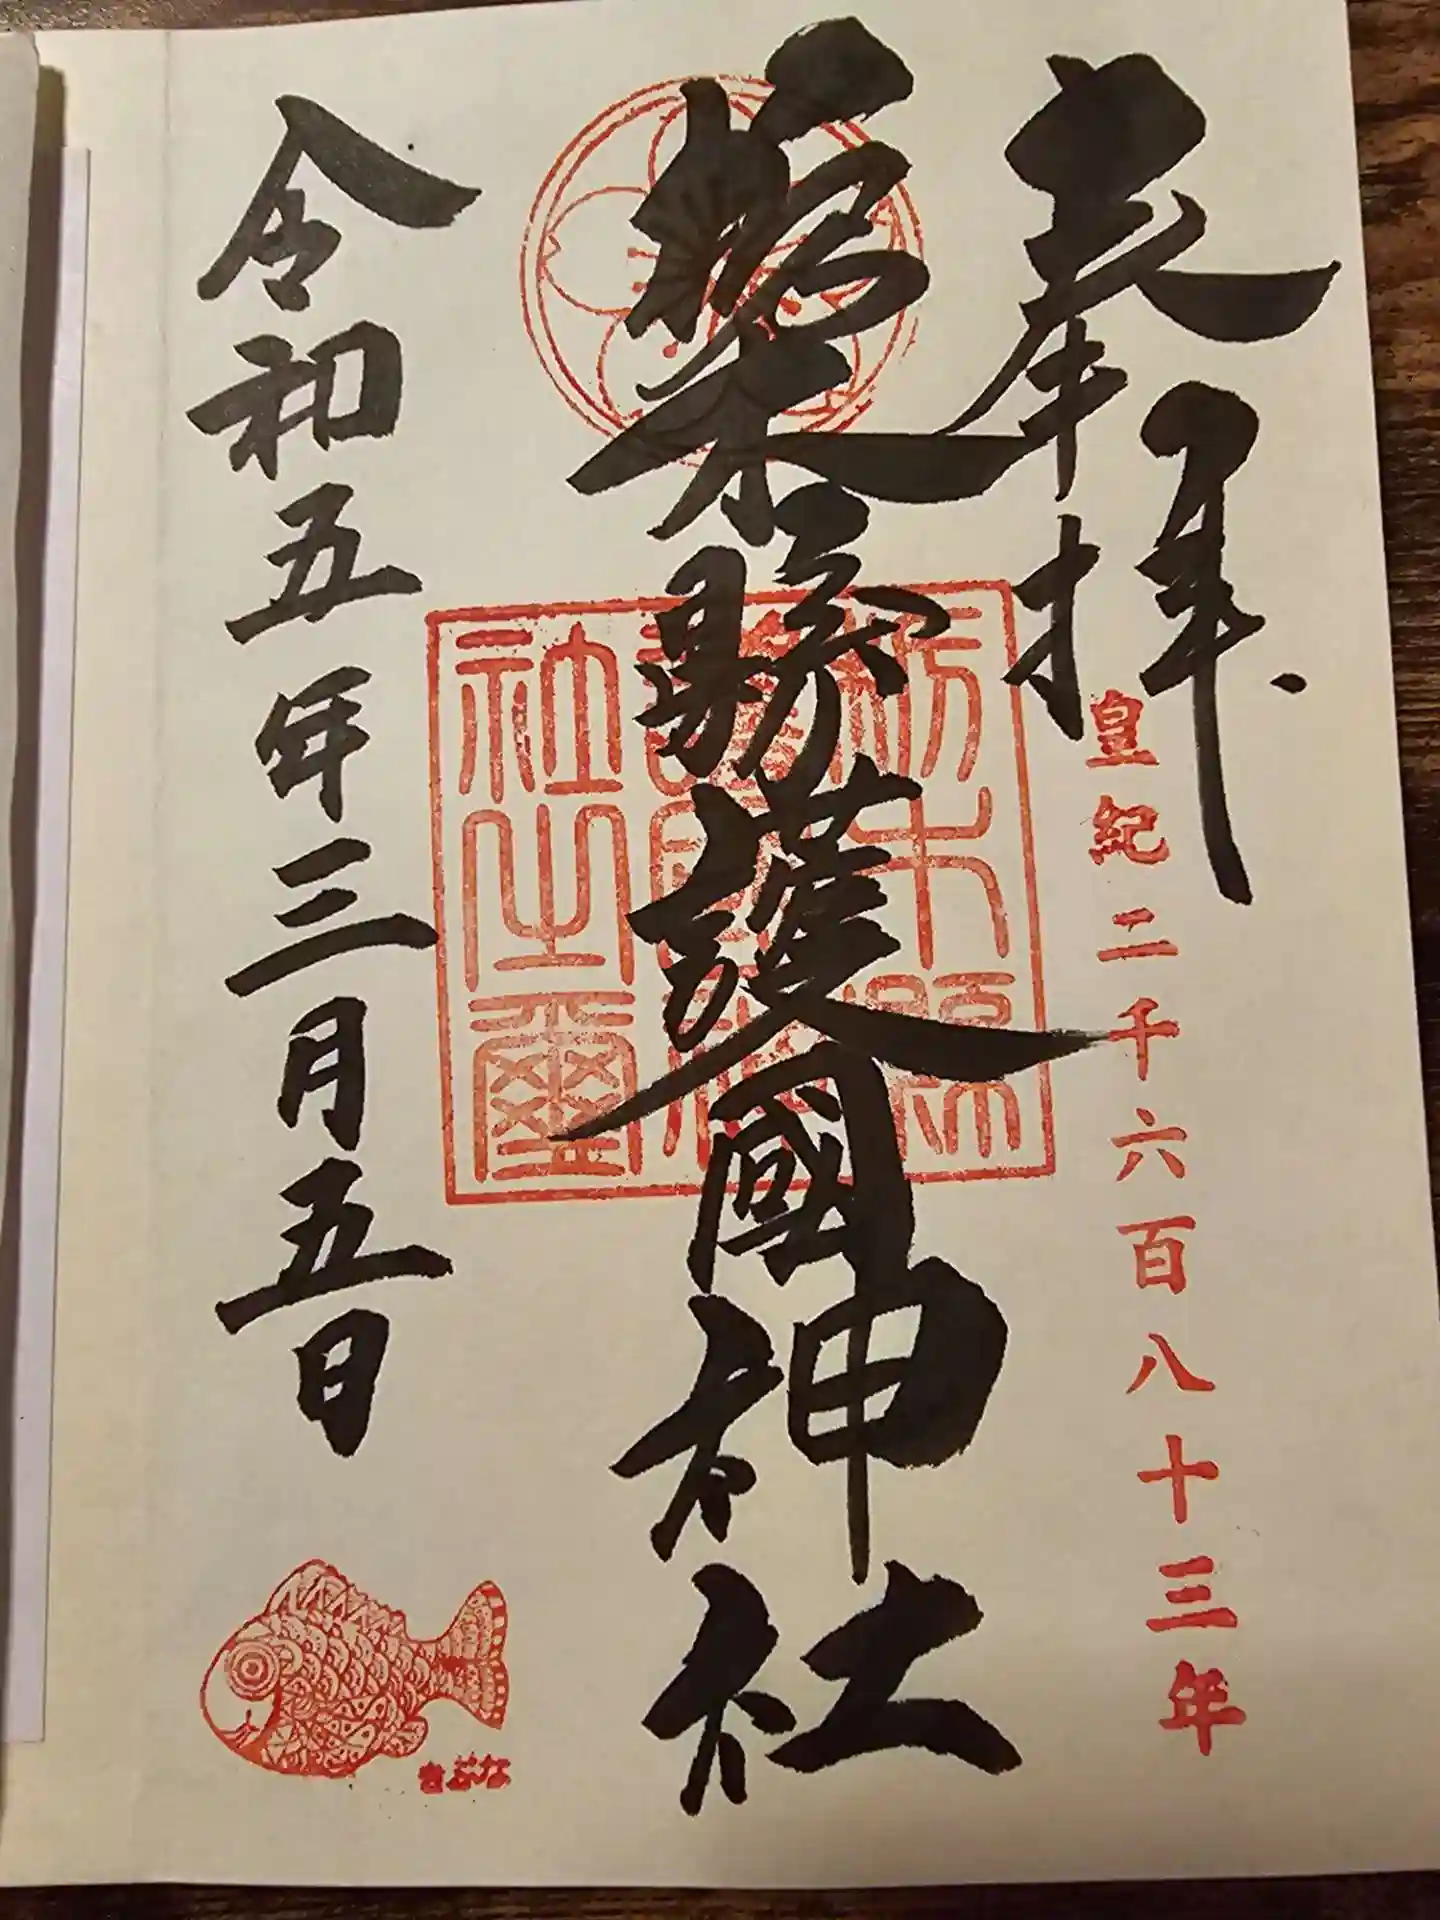 奉拝
皇紀二千六百八十三年
栃木縣護國神社
栃木縣
護國神
社之璽
令和五年三月五日
きぶな